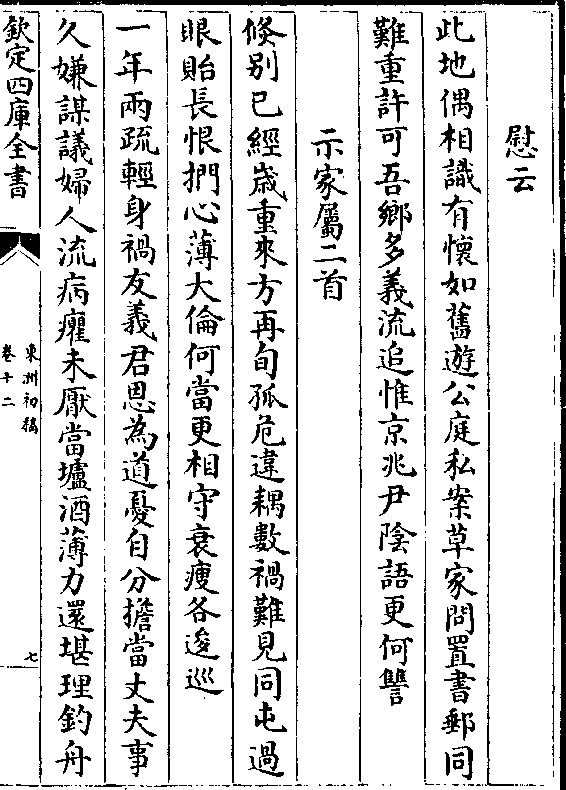 慰云
此地偶相識有懷如舊遊公庭私案草家問置書郵同
難重許可吾鄉多義流追惟京兆尹陰語更何讐
示家屬二首
倐别已經嵗重來方再旬孤危違耦數禍難見同屯過
眼貽長恨捫心薄大倫何當更相守衰瘦各逡巡
一年兩疏輕身禍友義君恩為道憂自分擔當丈夫事
久嫌謀議婦人流病癯未厭當壚酒薄力還堪理釣舟
欽定四庫全書
東洲初稿
卷十二
七